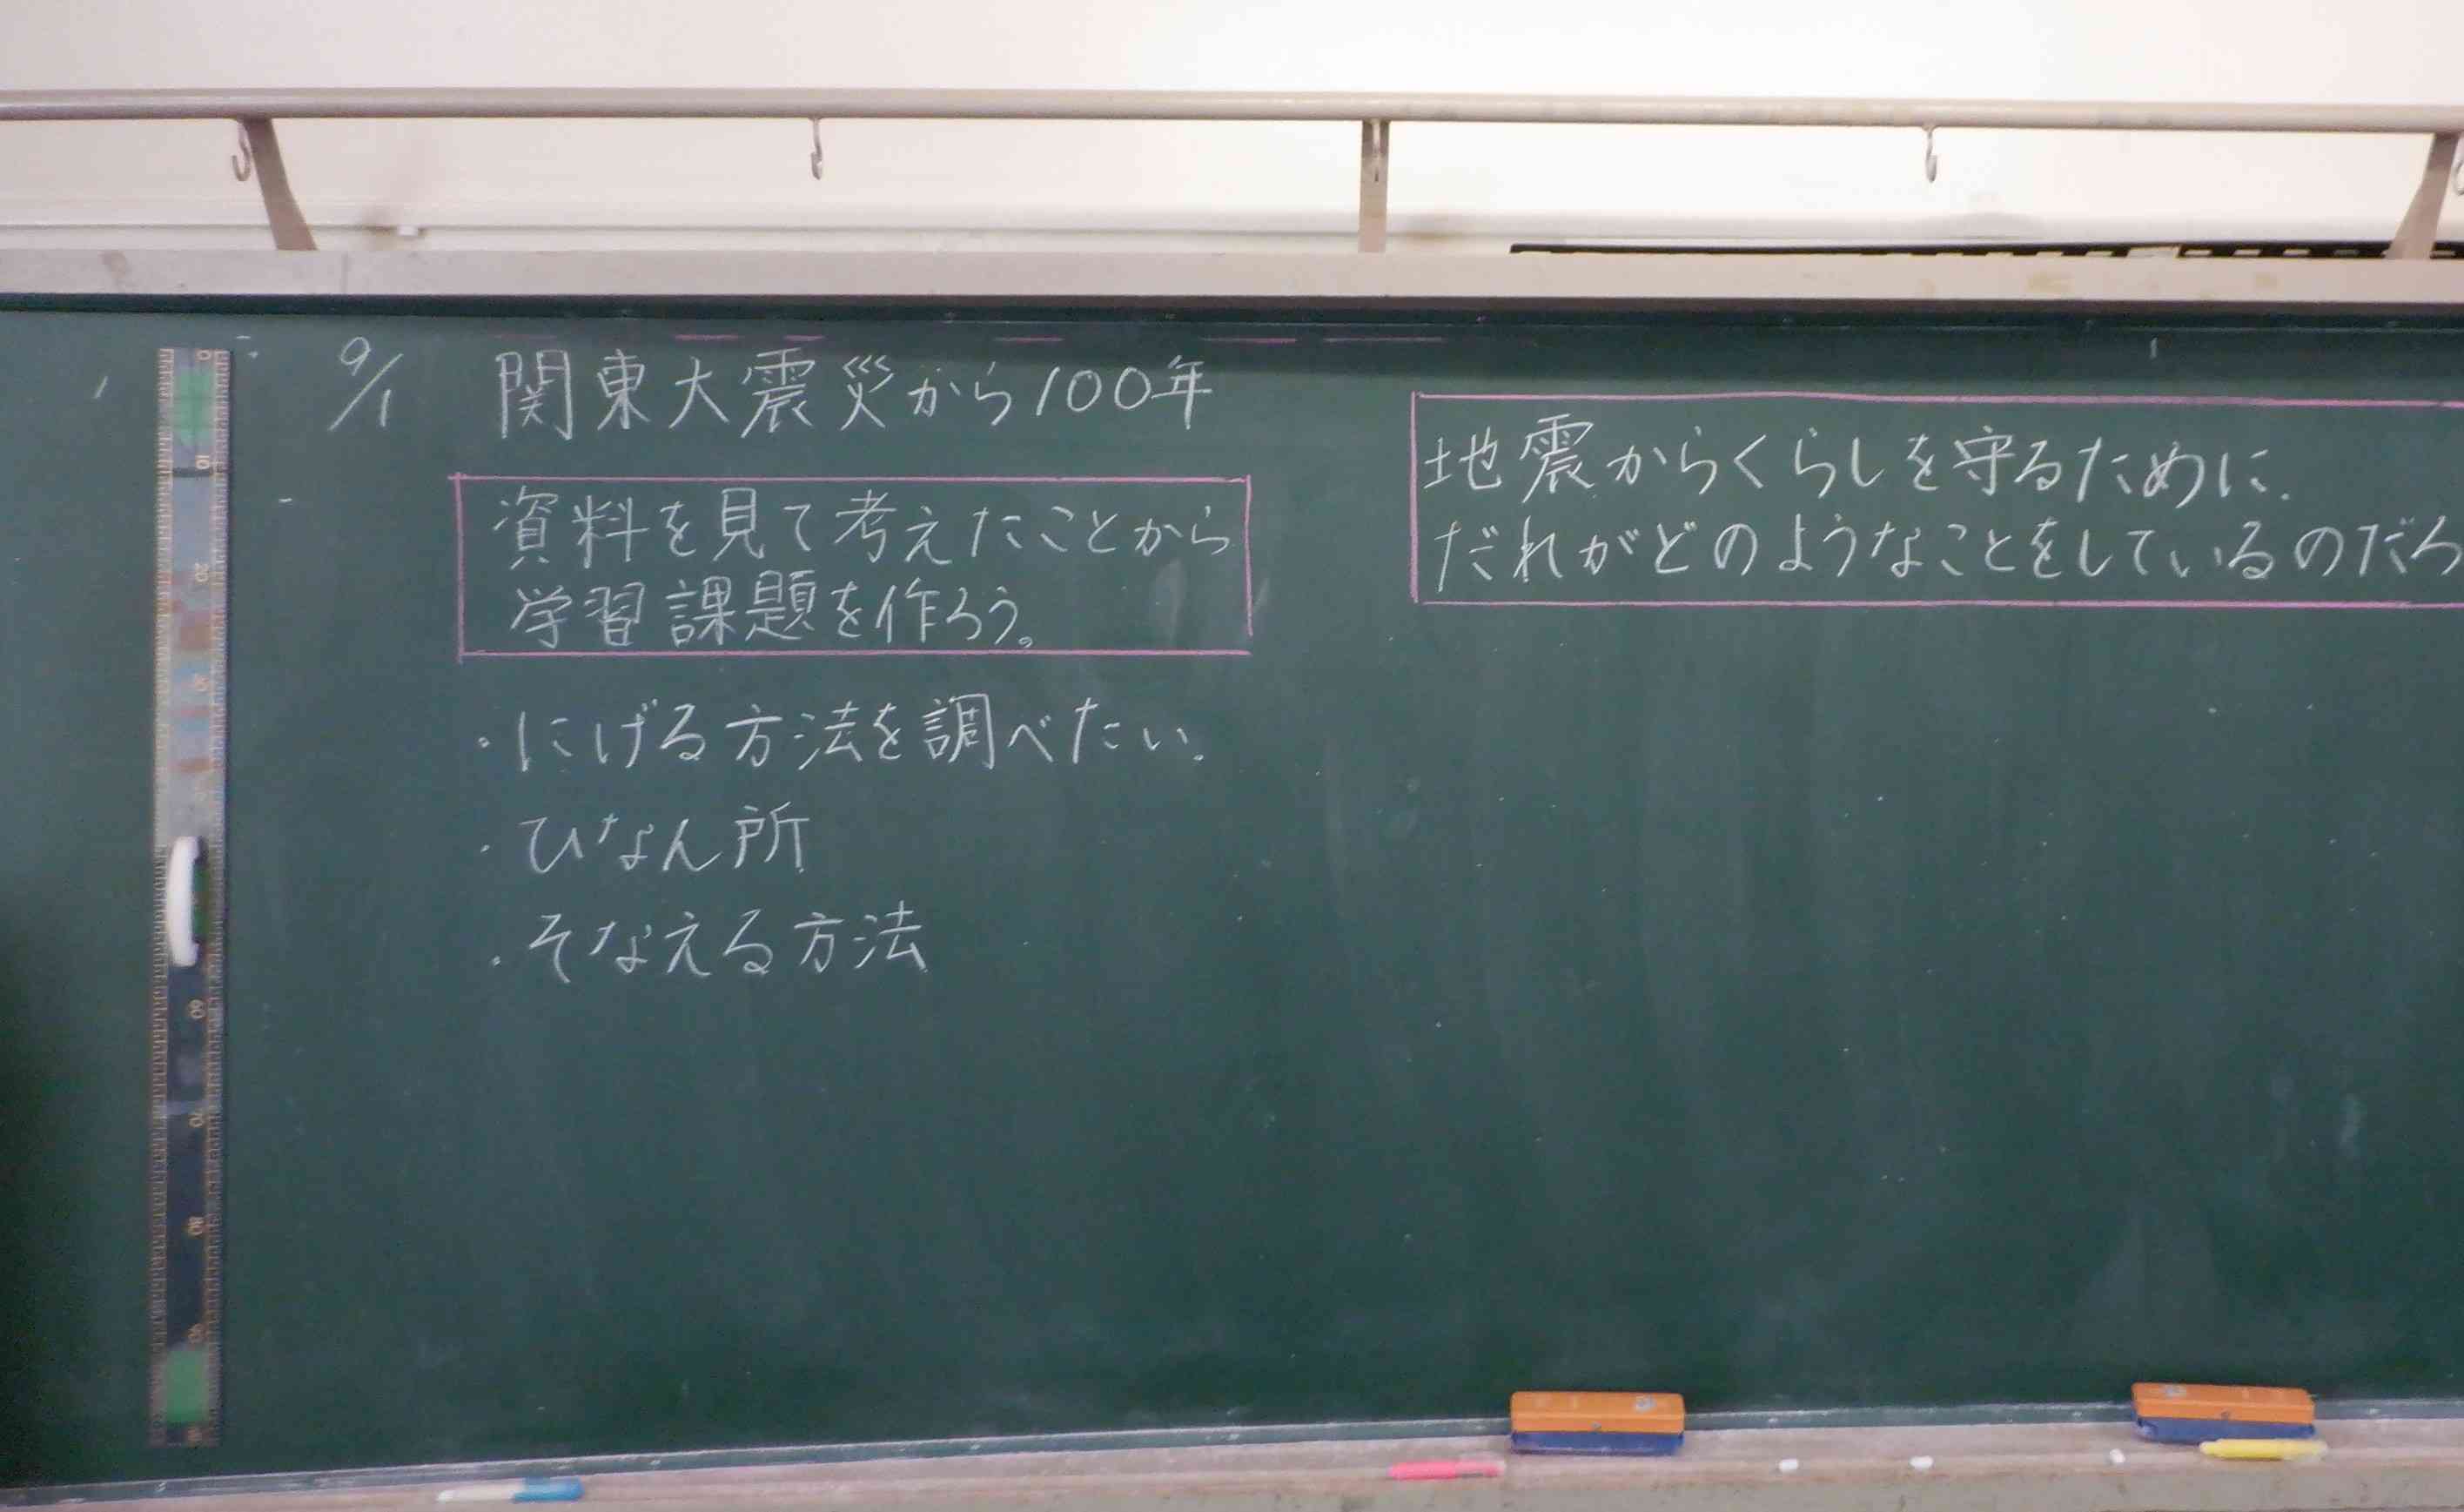 9/1 関東大震災から100年
資料を見て考えたことから
学習課題を作ろう。
・にげる方法を調べたい。
・ひなん所
・そなえる方法
地震からくらしを守るために、
だれがどのようなことをしているのだろ
0
10
20
30
40
60
70
80
90